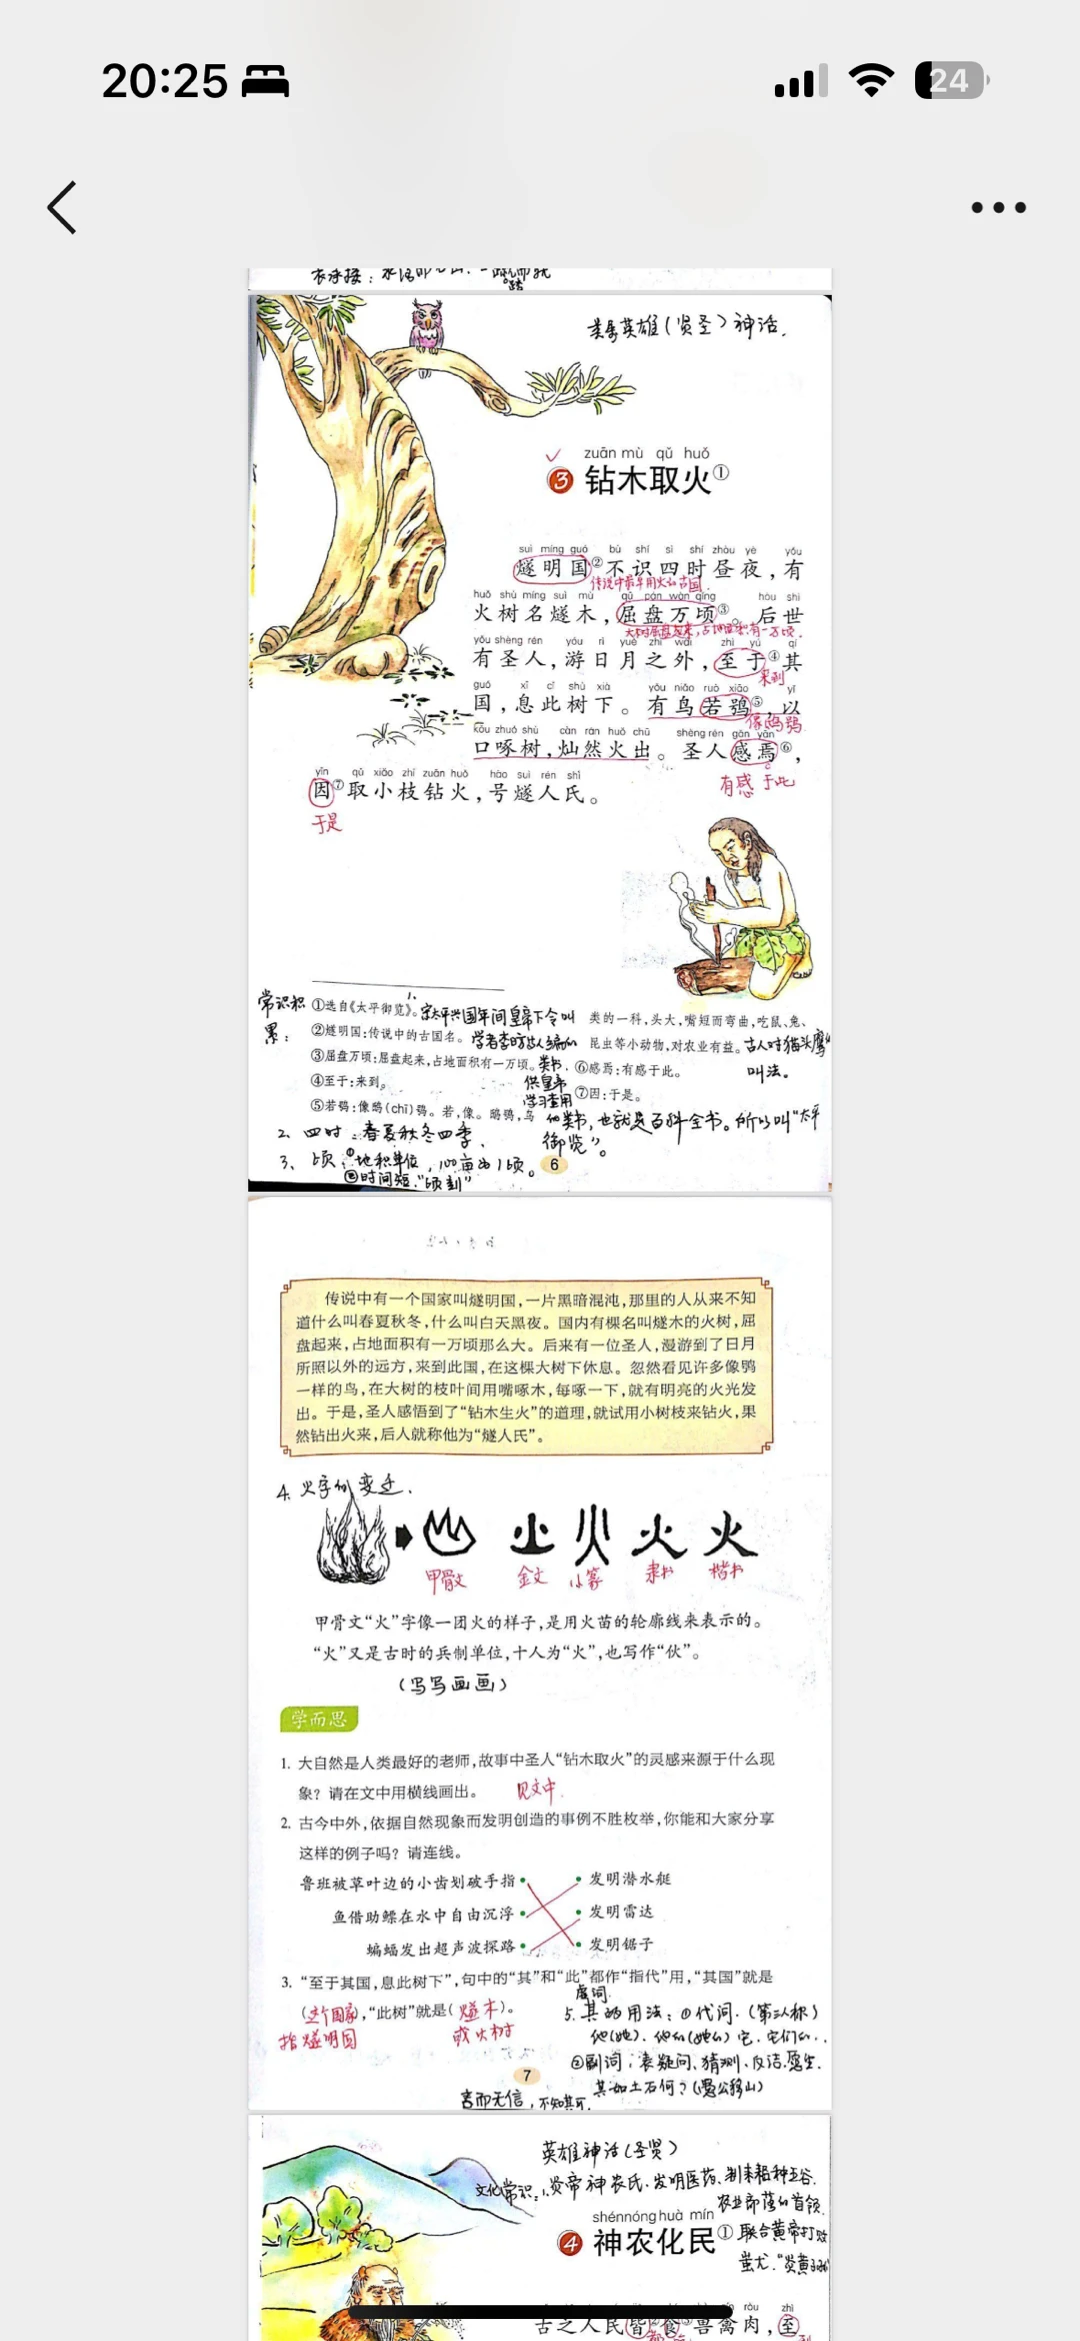 20:25
24
英雄(贤圣)神话.
zuān mù qǔ huǒ
3 钻木取火①
suì míng guó bù shí sì shí zhòu yè yǒu
燧明国②不识四时昼夜,有
传说中最早用火的古国.
huǒ shù míng suì mù qū pán wàn qǐng hòu shì
火树名燧木,屈盘万顷③。后世
大树屈盘起来,占地面积有一万顷.
yǒu shèng rén yóu rì yuè zhī wài zhì yú qí
有圣人,游日月之外,至于④其
来到
guó xī cǐ shù xià yǒu niǎo ruò xiāo yǐ
国,息此树下。有鸟若鸮⑤,以
像鸱鸮
kǒu zhuó shù càn rán huǒ chū shèng rén gǎn yān
口啄树,灿然火出。圣人感焉⑥,
有感于此
yīn qǔ xiǎo zhī zuān huǒ hào suì rén shì
因⑦取小枝钻火,号燧人氏。
于是
常识积累:
①选自《太平御览》。
宋太平兴国年间皇帝下令叫
②燧明国:传说中的古国名。
学者李昉等人编的
③屈盘万顷:屈盘起来,占地面积有一万顷。
类书.
④至于:来到。
供皇帝
学习查用
⑤若鸮:像鸱(chī)鸮。若,像。鸱鸮,鸟
类的一科,头大,嘴短而弯曲,吃鼠、兔、
昆虫等小动物,对农业有益。
古人对猫头鹰的
叫法。
⑥感焉:有感于此。
⑦因:于是。
的类书,也就是百科全书。所以叫“太平
御览”。
2、四时:春夏秋冬四季.
3、顷:①地积单位,100亩为1顷。
②时间短.“顷刻”
6
传说中有一个国家叫燧明国,一片黑暗混沌,那里的人从来不知
道什么叫春夏秋冬,什么叫白天黑夜。国内有棵名叫燧木的火树,屈
盘起来,占地面积有一万顷那么大。后来有一位圣人,漫游到了日月
所照以外的远方,来到此国,在这棵大树下休息。忽然看见许多像鸮
一样的鸟,在大树的枝叶间用嘴啄木,每啄一下,就有明亮的火光发
出。于是,圣人感悟到了“钻木生火”的道理,就试用小树枝来钻火,果
然钻出火来,后人就称他为“燧人氏”。
4.火字的变迁.
火 火 火 火
甲骨文 金文 小篆 隶书 楷书
甲骨文“火”字像一团火的样子,是用火苗的轮廓线来表示的。
“火”又是古时的兵制单位,十人为“火”,也写作“伙”。
(写写画画)
学而思
1. 大自然是人类最好的老师,故事中圣人“钻木取火”的灵感来源于什么现
象?请在文中用横线画出。 见文中.
2. 古今中外,依据自然现象而发明创造的事例不胜枚举,你能和大家分享
这样的例子吗?请连线。
鲁班被草叶边的小齿划破手指 发明潜水艇
鱼借助鳔在水中自由沉浮 发明雷达
蝙蝠发出超声波探路 发明锯子
3. “至于其国,息此树下”,句中的“其”和“此”都作“指代”用,“其国”就是
(这个国家),“此树”就是(燧木)。
指燧明国 或火树
虚词
5.其的用法:①代词.(第三人称)
他(她)、他们(她们)它、它们的..
②副词:表疑问、猜测、反诘.愿望.
其如土石何?(愚公移山)
7
言而无信,不知其可.
英雄神话(圣贤)
文化常识:1.炎帝神农氏、发明医药、制耒耜种五谷.
农业部落的首领.
shén nóng huà mín
4 神农化民①
联合黄帝打败
蚩尤.“炎黄子孙”
ròu zhì
古之人民皆食兽禽肉,至